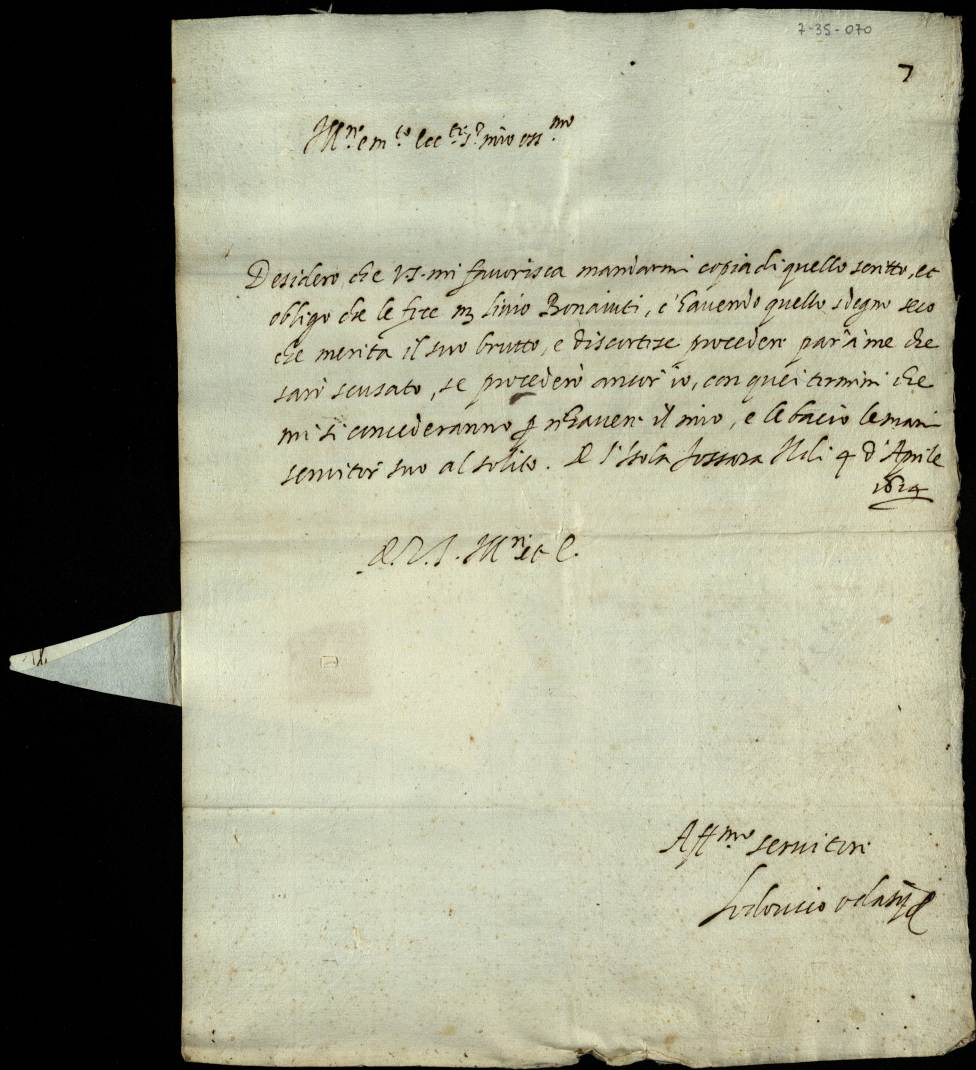 7-35-070
7
Ill.re e m.to ecc.te S.r mio oss.mo
Desidero che V.S. mi favorisca mandarmi copia di quello scritto, et
obligo che le fece m Livio Bonaiuti, e havendo quello sdegno seco
che merita il suo brutto, e discortese procedere par' à me che
sarò scusato, se procederò ancor' io, con quei termini che
mi si concederanno p rihaver il mio, e le bacio le mani
servitor suo al solito. Isola li 4 d'Aprile
1624
D.V.S. Ill.re et E.
Aff.mo servitore
Lodovico